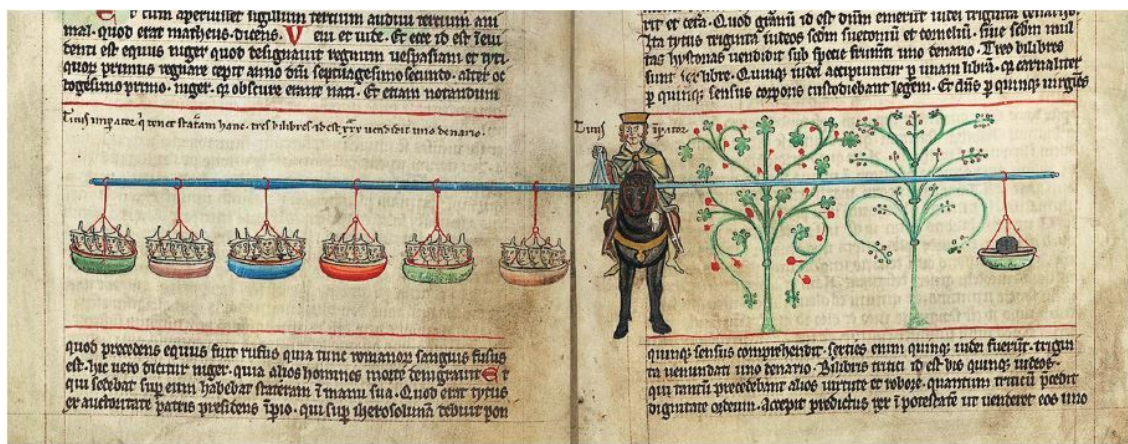 Et cum aperuisset sigillum tertium audivi tertium ani
mal. quod erat matheus. dicens. Veni et vide. Et ecce id est
denti est equus niger quod designavit regnum vespasiani et tyti.
quor primus regnare cepit anno dni septuagesimo secundo. alter oc
togesimo primo. niger. qr obscure erant nati. Et etiam notandum
Titus imperator q tenet stateram hanc. tres bilibres. id est. xxx vendidit uno denario.
quod precedens equus fuit rufus quia tunc romanor sanguis fusus
est. hic vero dicitur niger. quia alios homines morte denigravit. Et
qui sedebat sup eum habebat stateram i manu sua. Quod erat tytus
ex auctoritate patris presidens ipio. qui sup iherosolimam debuit pon
rit et cetera. Quod granum id est dnm emerunt iudei triginta denarijs.
Ita tytus triginta iudeos scdm suetonium et cornelium. sive scdm mul
tas hystorias vendidit sub specie frumti uno denario. Tres bilibres
sunt sex libre. Quinq iudei accipiuntur p unam libram. qr carnaliter
p quinq sensus corporis custodiebant legem. Et dns p quinq virgines
Titus iperator
quinq sensus comprehendit. sexties enim quinq iudei fuerut. trigin
ta venundati uno denario. Bilibris tritici id est bis quinq iudeos.
qui tantum precedebant alios virtute et robore. quantum triticum pcedit
dignitate ordeum. Accepit predictus rex i potestate ut venderet eos uno